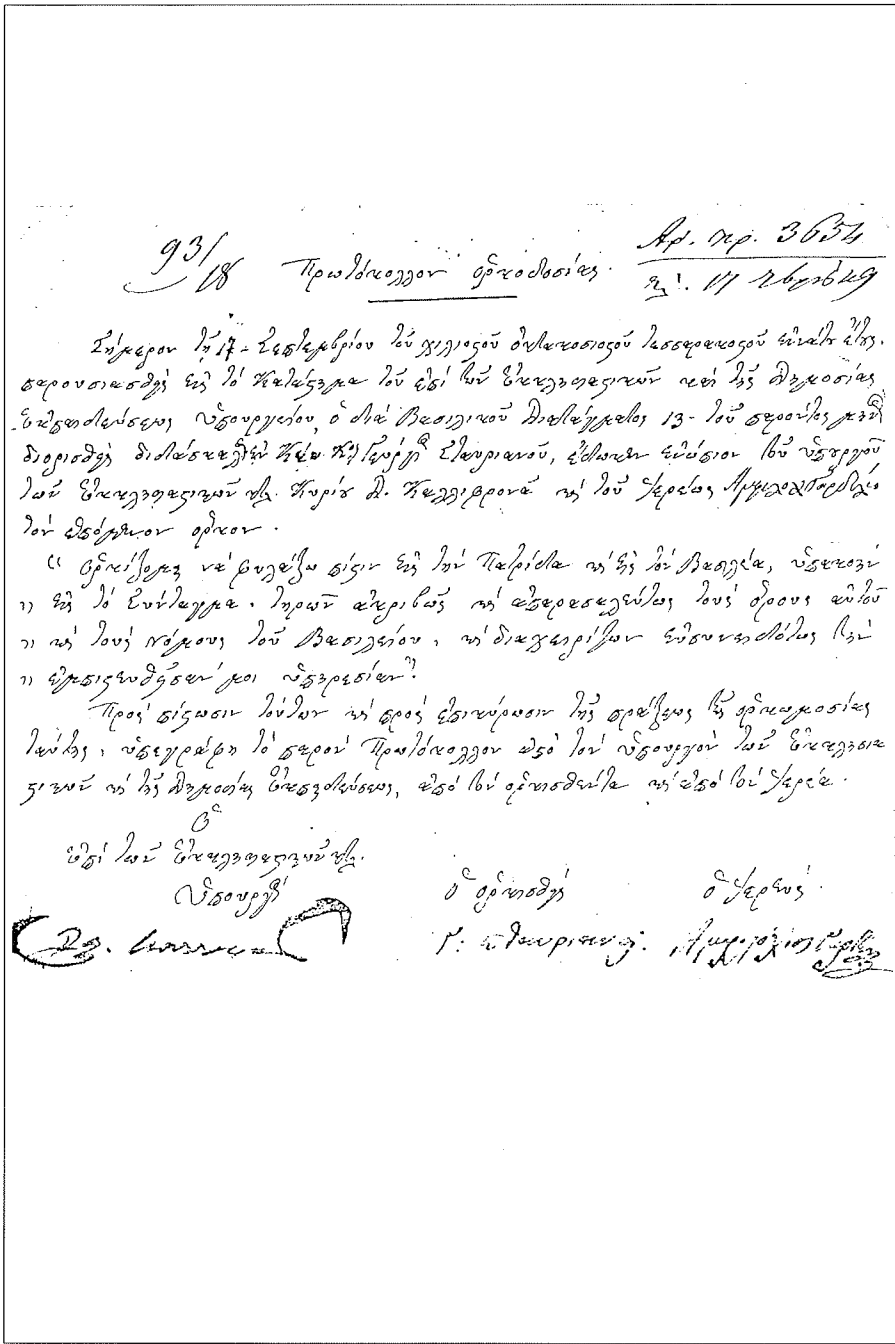 93/18
Πρωτόκολλον ὁρκοδοσίας.
Ἀρ. πρ. 3654
17 7βρίου 49
Σήμερον τῇ 17 - Σεπτεμβρίου τοῦ χιλιοστοῦ ὀκτακοσιοστοῦ τεσσαρακοστοῦ ἐννάτου ἔτους
παρουσιασθεὶς εἰς τὸ Κατάστημα τοῦ ἐπὶ τῶν Ἐκκλησιαστικῶν καὶ τῆς Δημοσίας
Ἐκπαιδεύσεως Ὑπουργείου, ὁ διὰ Βασιλικοῦ Διατάγματος 13 - τοῦ παρόντος μηνὸς
διορισθεὶς διδάσκαλος Γεώργιος Σταυριανοῦ, ἔδωκεν ἐνώπιον τοῦ ὑπουργοῦ
τῶν Ἐκκλησιαστικῶν κτλ. Κυρίου Δ. Καλλιφρονᾶ καὶ τοῦ Ἱερέως
τὸν ἑπόμενον ὅρκον.
" Ὁρκίζομαι νὰ φυλάξω πίστιν εἰς τὴν Πατρίδα καὶ εἰς τὸν Βασιλέα, ὑπακοὴν
" εἰς τὸ Σύνταγμα, τηρῶν ἀκριβῶς καὶ ἀπαρασαλεύτως τοὺς ὅρους αὐτοῦ
" καὶ τοὺς νόμους τοῦ Βασιλείου, καὶ διαχειρίζων εὐσυνειδότως τὴν
" ἐμπιστευθεῖσάν μοι ὑπηρεσίαν"
Πρὸς πίστωσιν τούτων καὶ πρὸς ἐπικύρωσιν τῆς πράξεως τῆς ὁρκωμοσίας
ταύτης, ὑπεγράφη τὸ παρὸν Πρωτόκολλον ἀπὸ τὸν ὑπουργὸν τῶν Ἐκκλησια
στικῶν καὶ τῆς Δημοσίας Ἐκπαιδεύσεως, ἀπὸ τὸν ὁρκισθέντα καὶ ἀπὸ τὸν Ἱερέα.
Ὁ
ἐπὶ τῶν Ἐκκλησιαστικῶν κτλ.
Ὑπουργὸς
ὁ ὁρκισθεὶς
ὁ Ἱερεὺς
Γ. Σταυριανός.